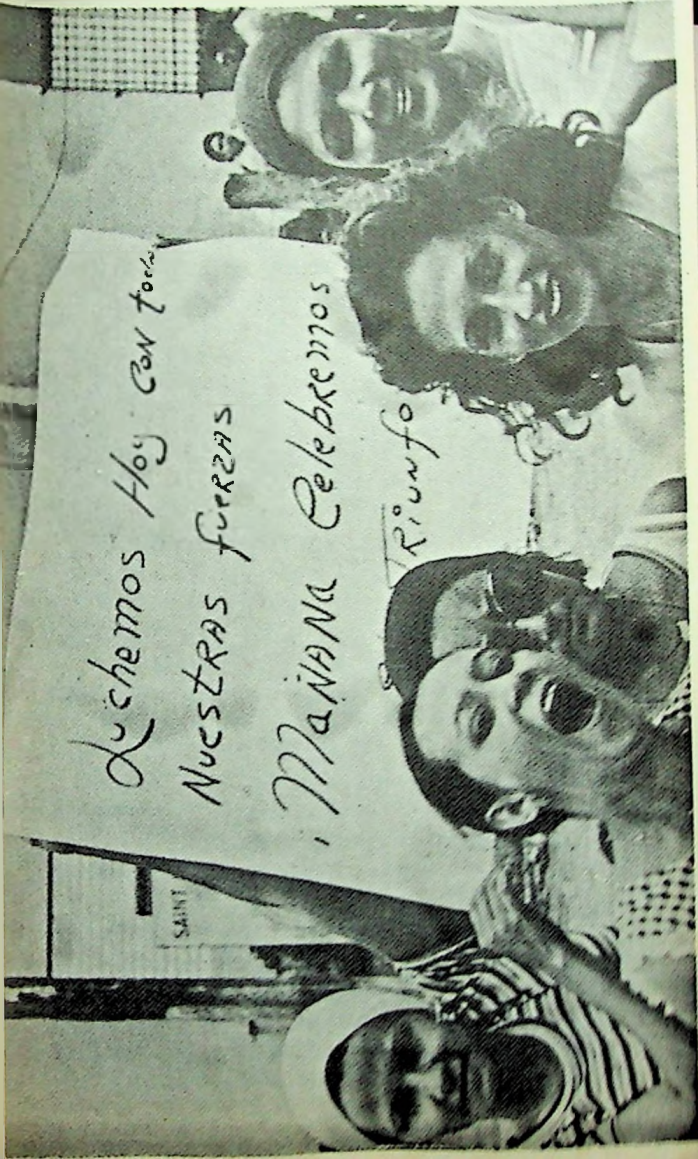 Luchemos Hoy con todas
Nuestras fuerzas
, Mañana Celebremos
Triunfo
SAINT